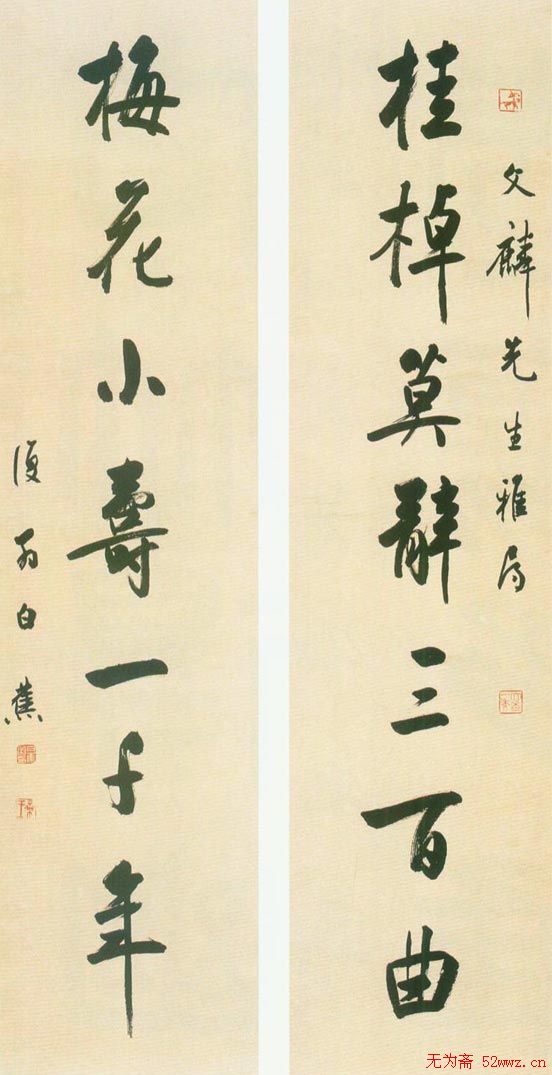 文麟先生雅属
桂棹莫辭三百曲
梅花小壽一千年
復翁白蕉
无为斋 52wwz.cn